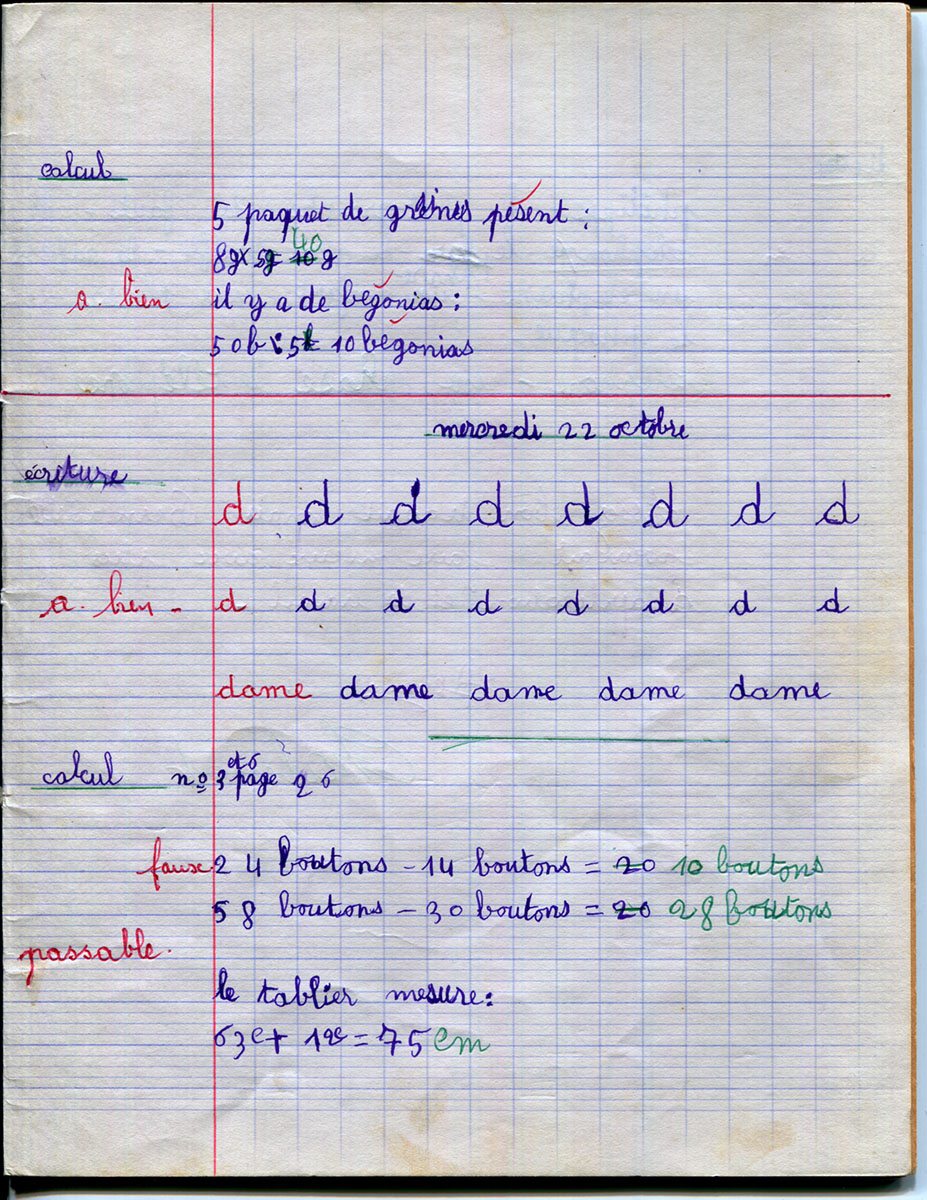 calcul
5 paquet de graines pèsent :
40
8g x 5g = 10 g
a. bien il y a de bégonias :
50b : 5b = 10 bégonias
mercredi 22 octobre
écriture
d d d d d d d d
a. bien - d d d d d d d d
dame dame dame dame dame
et 6
calcul nº 3 page 26
fausse 24 boutons - 14 boutons = 20 10 boutons
58 boutons - 30 boutons = 20 28 boutons
passable.
le tablier mesure :
63c + 12c = 75 cm